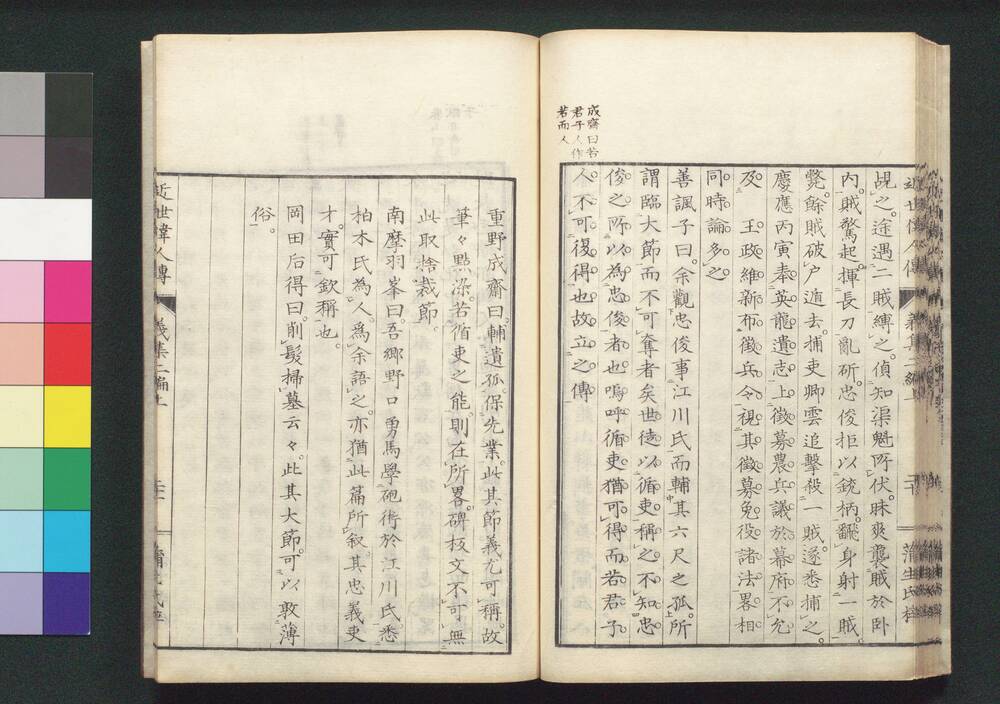 成齋曰若
君子人作
若而人
覘之。途遇二賊縛之。偵知渠魁所伏。昧爽襲賊於臥
内。賊驚起。揮長刀亂斫。忠俊拒以銃柄。飜身射一賊。
斃。餘賊破戸遁去。捕吏卿雲追擊殺一賊。遂悉捕之。
慶應丙寅奉英龍遺志上徵募農兵議於幕府。不允
及 王政維新布徵兵令。視其徵募免役諸法畧相
同。時論多之。
善諷子曰。余觀忠俊事江川氏。而輔其六尺之孤。所
謂臨大節而不可奪者矣。世徒以循吏稱之。不知忠
俊之所以為忠俊者也。嗚呼循吏猶可得。而若君子
人。不可復得也。故立之傳
近世偉人傳 義集二編上 二十 蒲生氏梓
重野成齋曰。輔遺孤。保先業。此其節義尤可稱。故
筆々點染。若循吏之能。則在所畧。碑板文不可無
此取捨裁節。
南摩羽峯曰。吾郷野口勇馬學砲術於江川氏。悉
柏木氏為人。為余語之。亦猶此篇所叙。其忠義吏
才。實可欽稱也。
岡田后得曰。削髮掃墓云々。此其大節。可以敦薄
俗。
近世偉人傳 義集二編上